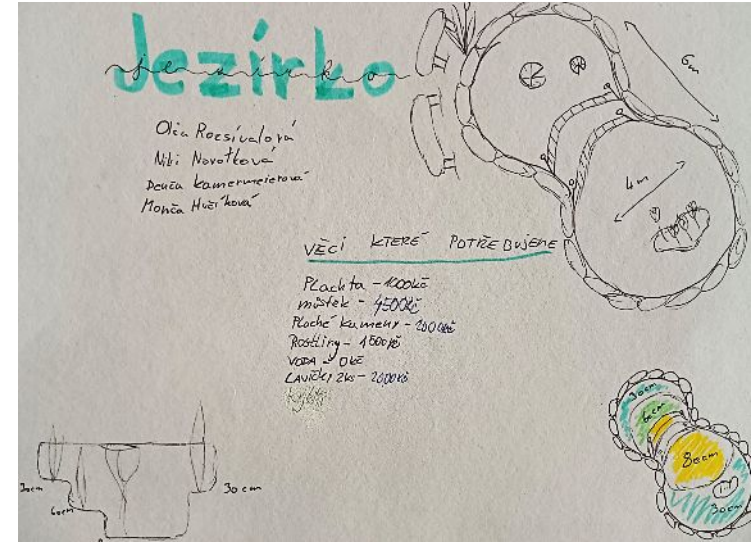 Jezírko
jezírko
Niki Novotková
Denča Kamermeierová
Monča
6m
4m
VĚCI KTERÉ POTŘEBUJEME
Plachta - 1000kč
můstek - 4500kč
Ploché kameny - 2000kč
Rostliny - 1500kč
VODA - 0kč
LAVIČKY 2ks - 2000kč
30cm
60cm
30cm
30cm
60cm
80cm
30cm